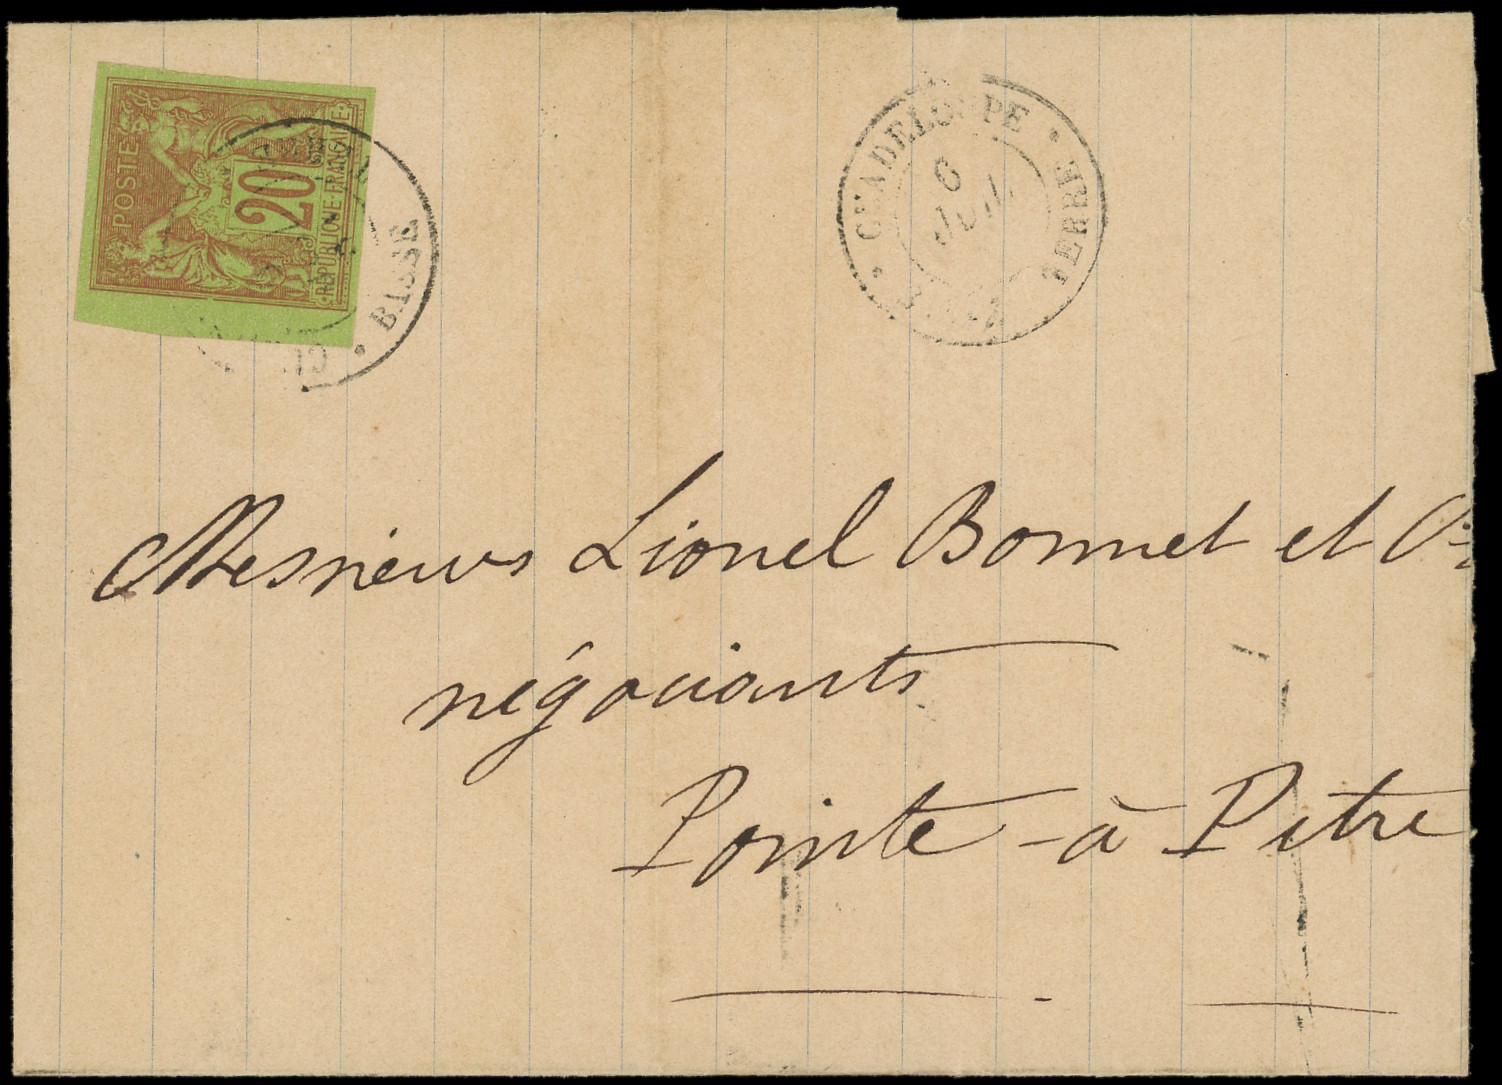 POSTES
20
RÉPUBLIQUE FRANÇAISE
BASSE
GUADELOUPE
6
JUIL
BASSE TERRE
Messieurs Lionel Bonnet et Cie
négociants
Pointe-à-Pitre